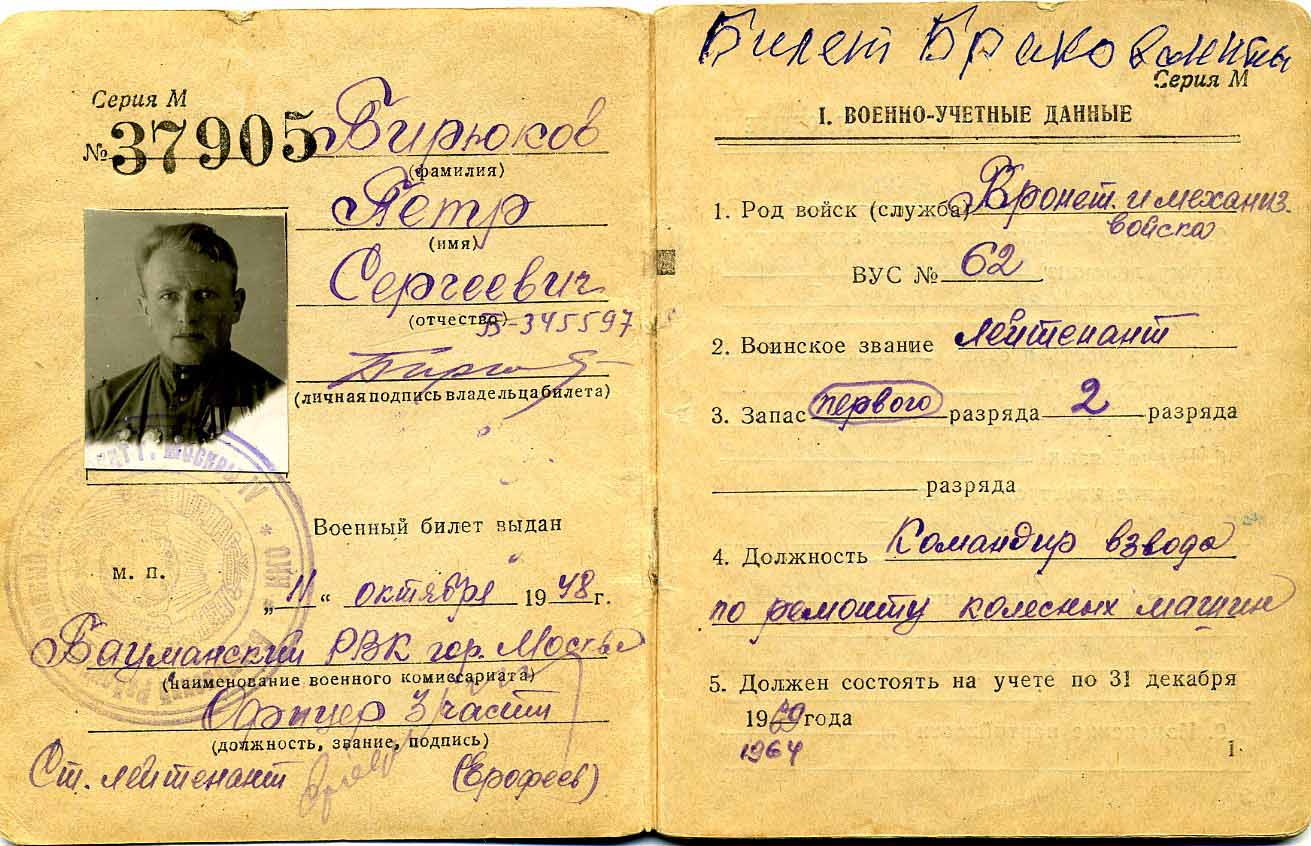 Серия М
№ 37905
Бирюков
(фамилия)
Пётр
(имя)
Сергеевич
(отчество)
Б-345597
(личная подпись владельца билета)
Военный билет выдан
м. п.
„11“ октября 1948 г.
Бауманский РВК гор. Москвы
(наименование военного комиссариата)
Офицер 3 части
(должность, звание, подпись)
Ст. лейтенант (Ерофеев)
Билет
Серия М
I. ВОЕННО-УЧЕТНЫЕ ДАННЫЕ
1. Род войск (служба) Бронет. и механиз.
войска
ВУС № 62
2. Воинское звание лейтенант
3. Запас первого разряда 2 разряда
разряда
4. Должность Командир взвода
по ремонту колесных машин
5. Должен состоять на учете по 31 декабря
19 года
1964
1